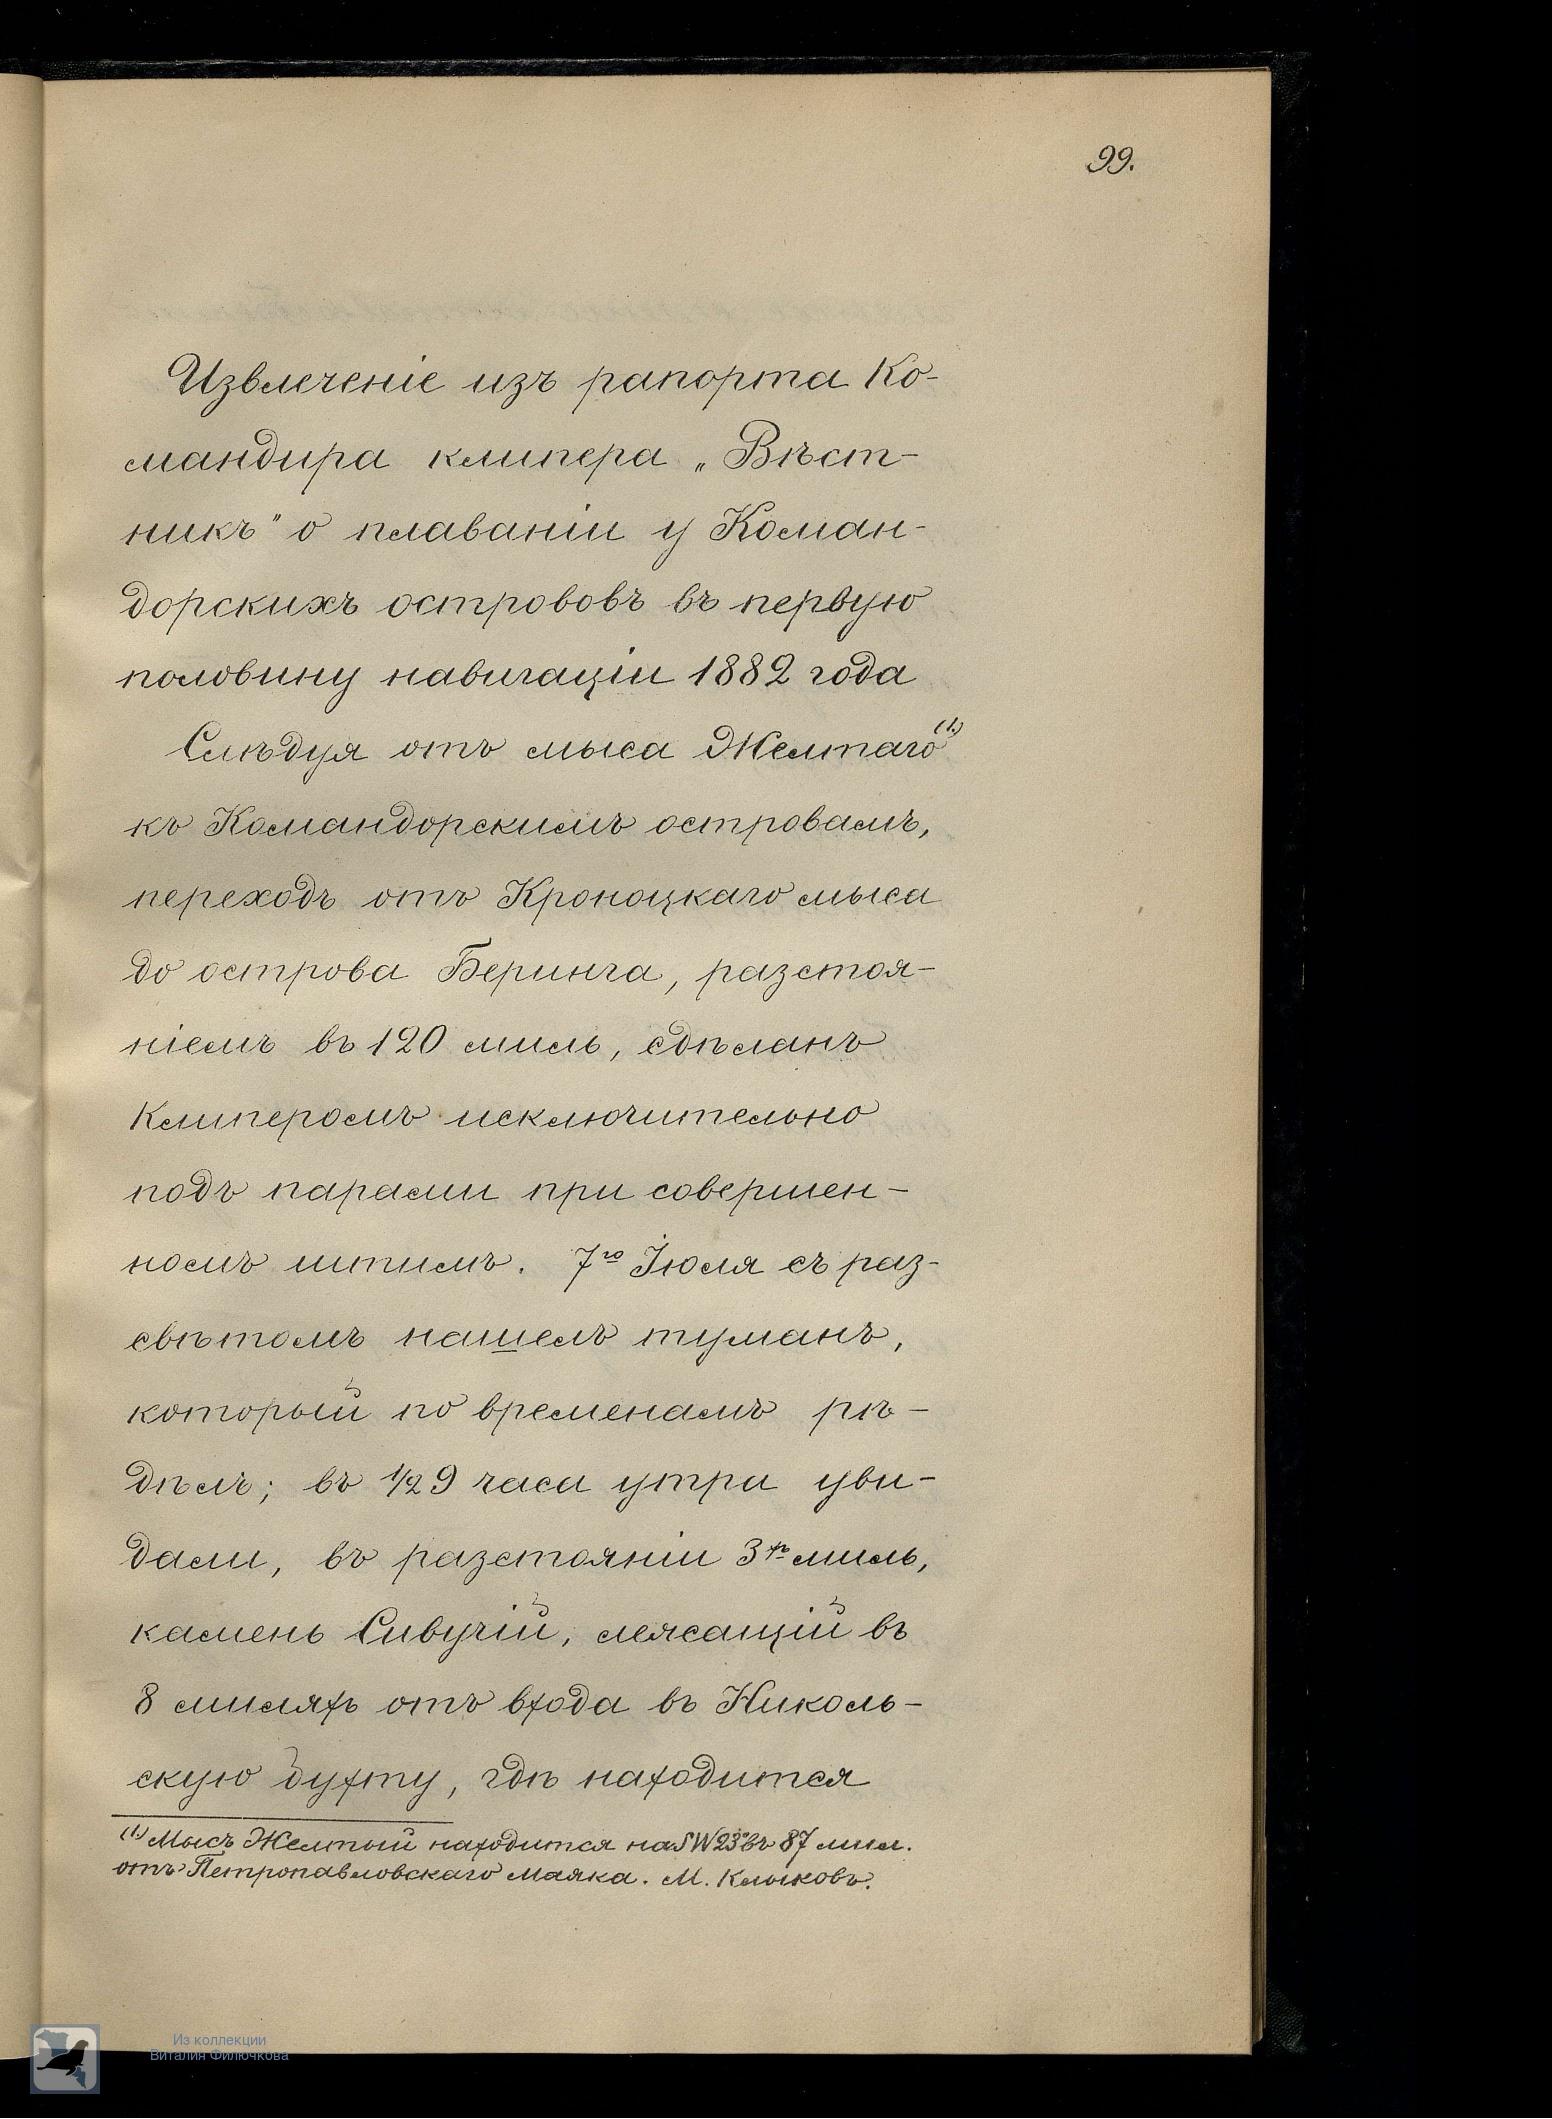 99.
Извлеченіе изъ рапорта Ко-
мандира клипера „Вѣст-
никъ" о плаваніи у Коман-
дорскихъ острововъ въ первую
половину навигаціи 1882 года
Слѣдуя отъ мыса Желтаго (1.)
къ Командорскимъ островамъ,
переходъ отъ Кроноцкаго мыса
до острова Беринга, разстоя-
ніемъ въ 120 миль, сдѣланъ
Клиперомъ исключительно
подъ парами при совершен-
номъ штилѣ. 7го Іюля съ раз-
свѣтомъ нашелъ туманъ,
который по временамъ рѣ-
дѣлъ; въ 1/2 9 часа утра уви-
дали, въ разстояніи 3хъ миль,
камень Сивучій, лежащій въ
8 миляхъ отъ входа въ Николь-
скую бухту, гдѣ находится
(1.) Мысъ Желтый находится на SW 23° въ 87 мил.
отъ Петропавловскаго Маяка. М. Клыковъ.
Из коллекции
Виталия Филючкова